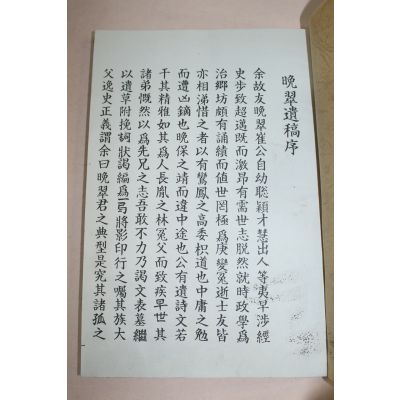 晩翠遺稿序
余故友晩翠崔公自幼聡穎才慧出人等夷早涉經
史步致超邁既而激昂有需世志脫然就時政學爲
治鄉坊頗有誦績而値世罔極爲庚變冤逝士友皆
亦相涕惜之者以有鸞鳳之高委枳道也中庸之勉
而遭凶鏑也晩保之靖而違中途也公有遺詩文若
干其精雅如其爲人長胤之林冤父而致疾早世其
諸弟慨然以爲先兄之志吾敢不力乃謁文表墓繼
以遺草附挽詞狀謁編爲一弓將影印行之囑其族大
父逸史正義謂余曰晩翠君之典型是究其諸孤之